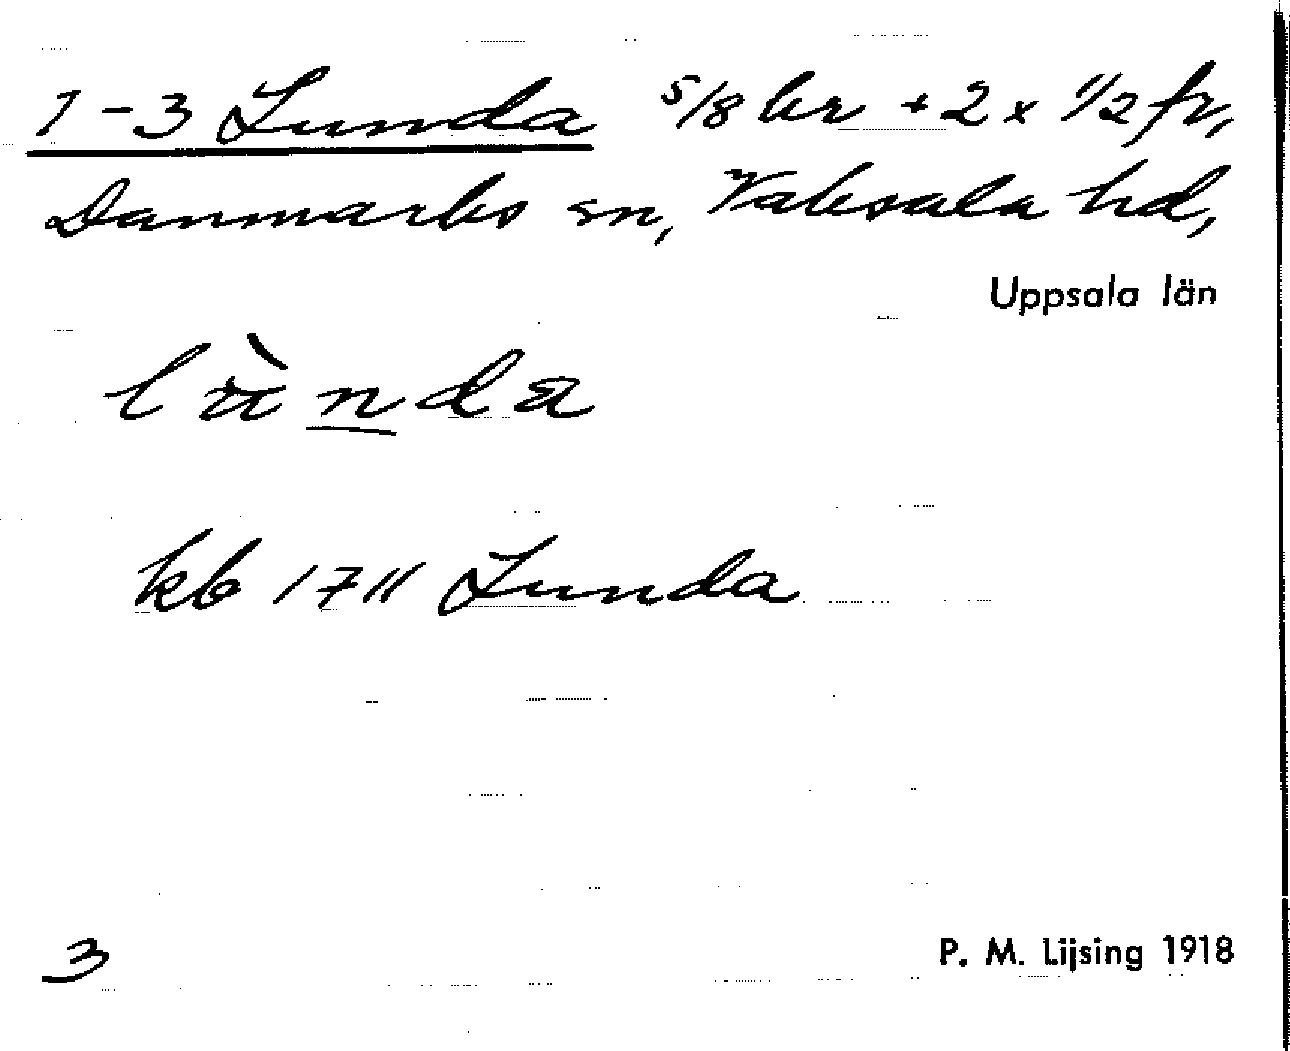 1-3 Lunda 5/8 kr + 2 x 1/2 fr,
Danmarks sn, Vaksala hd,
Uppsala län
lùnda
kb 1711 Lunda
3
P. M. Lijsing 1918